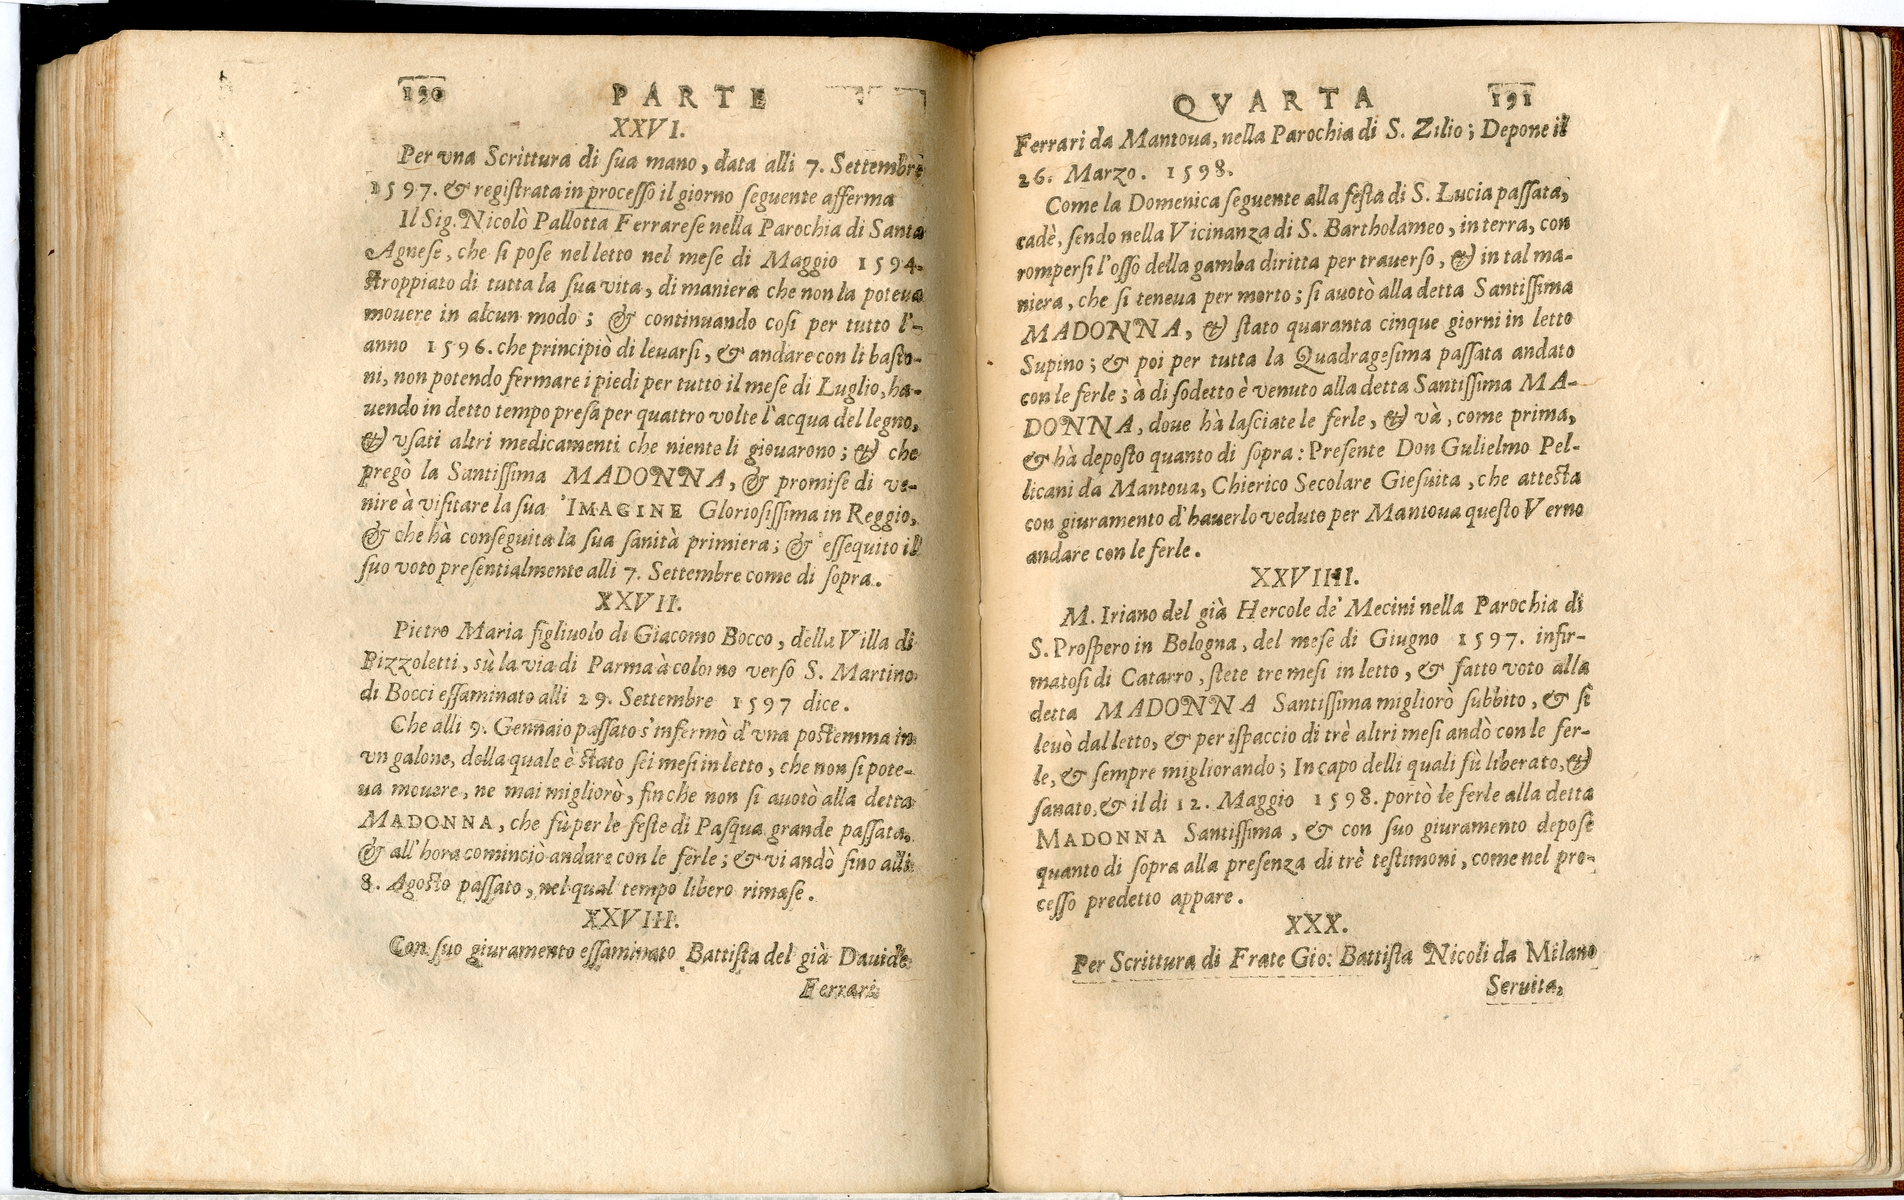 190 PARTE
XXVI.
Per vna Scrittura di sua mano, data alli 7. Settembre
1597. & registrata in processo il giorno seguente afferma
Il Sig. Nicolò Pallotta Ferrarese nella Parochia di Santa
Agnese, che si pose nel letto nel mese di Maggio 1594.
stroppiato di tutta la sua vita, di maniera che non la poteua
mouere in alcun modo; & continuando cosi per tutto l'-
anno 1596. che principiò di leuarsi, & andare con li basto-
ni, non potendo fermare i piedi per tutto il mese di Luglio, ha-
uendo in detto tempo presa per quattro volte l'acqua del legno,
& vsati altri medicamenti che niente li giouarono; & che
pregò la Santissima MADONNA, & promise di ve-
nire à visitare la sua IMAGINE Gloriosissima in Reggio,
& che hà conseguita la sua sanità primiera; & essequito il
suo voto presentialmente alli 7. Settembre come di sopra.
XXVII.
Pietro Maria figliuolo di Giacomo Bocco, della Villa di
Pizzoletti, sù la via di Parma à colorno verso S. Martino
di Bocci essaminato alli 29. Settembre 1597 dice.
Che alli 9. Gennaio passato s'infermò d'vna postemma in
vn galone, della quale è stato sei mesi in letto, che non si pote-
ua mouere, ne mai migliorò, fin che non si auotò alla detta
MADONNA, che fù per le feste di Pasqua grande passata,
& all'hora cominciò andare con le ferle; & vi andò sino alli
8. Agosto passato, nel qual tempo libero rimase.
XXVIII.
Con suo giuramento essaminato Battista del già Dauide
Ferrari
QVARTA 191
Ferrari da Mantoua, nella Parochia di S. Zilio; Depone il
26. Marzo. 1598.
Come la Domenica seguente alla festa di S. Lucia passata,
cadè, sendo nella Vicinanza di S. Bartholameo, in terra, con
rompersi l'osso della gamba diritta per trauerso, & in tal ma-
niera, che si teneua per morto; si auotò alla detta Santissima
MADONNA, & stato quaranta cinque giorni in letto
Supino; & poi per tutta la Quadragesima passata andato
con le ferle; à di sodetto è venuto alla detta Santissima MA-
DONNA, doue hà lasciate le ferle, & và, come prima,
& hà deposto quanto di sopra: Presente Don Gulielmo Pel-
licani da Mantoua, Chierico Secolare Giesuita, che attesta
con giuramento d'hauerlo veduto per Mantoua questo Verno
andare con le ferle.
XXVIIII.
M. Iriano del già Hercole de' Mecini nella Parochia di
S. Prospero in Bologna, del mese di Giugno 1597. infir-
matosi di Catarro, stete tre mesi in letto, & fatto voto alla
detta MADONNA Santissima migliorò subbito, & si
leuò dal letto, & per ispaccio di trè altri mesi andò con le fer-
le, & sempre migliorando; In capo delli quali fù liberato, &
sanato, & il di 12. Maggio 1598. portò le ferle alla detta
MADONNA Santissima, & con suo giuramento depose
quanto di sopra alla presenza di trè testimoni, come nel pro-
cesso predetto appare.
XXX.
Per Scrittura di Frate Gio: Battista Nicoli da Milano
Seruita,